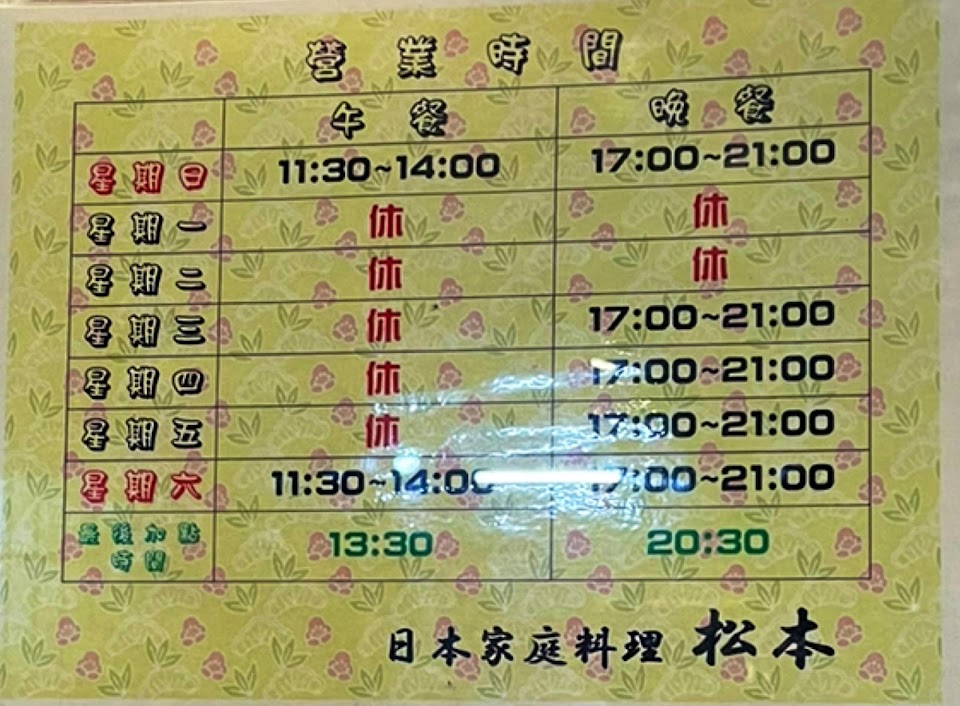 營業時間
午餐 晚餐
星期日 11:30~14:00 17:00~21:00
星期一 休 休
星期二 休 休
星期三 休 17:00~21:00
星期四 休 17:00~21:00
星期五 休 17:00~21:00
星期六 11:30~14:00 17:00~21:00
最後加點
時間 13:30 20:30
日本家庭料理 松本